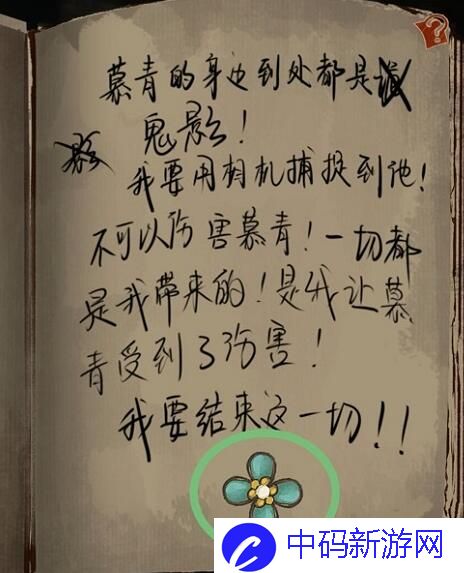 慕青的身边到处都是
鬼影！
我要用相机捕捉到他！
不可以伤害慕青！一切都
是我带来的！是我让慕
青受到了伤害！
我要结束这一切！！
?
中码新游网